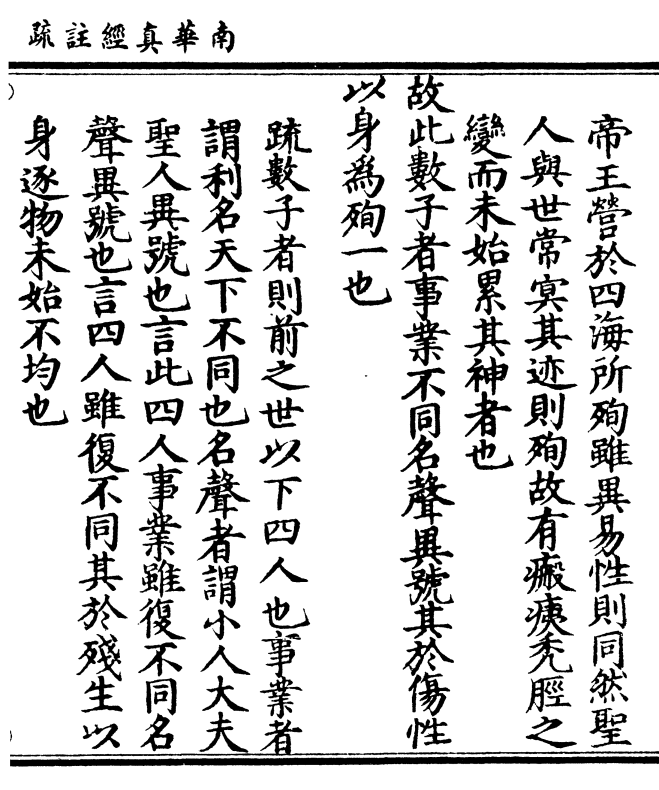 南華真經註疏
帝王營於四海所殉雖異易性則同然聖
人與世常㝠其迹則殉故有瘢痍禿脛之
變而未始累其神者也
故此數子者事業不同名聲異號其於傷性
以身爲殉一也
疏數子者則前之世以下四人也事業者
謂利名天下不同也名聲者謂小人大夫
聖人異號也言此四人事業雖復不同名
聲異號也言四人雖復不同其於殘生以
身逐物未始不均也